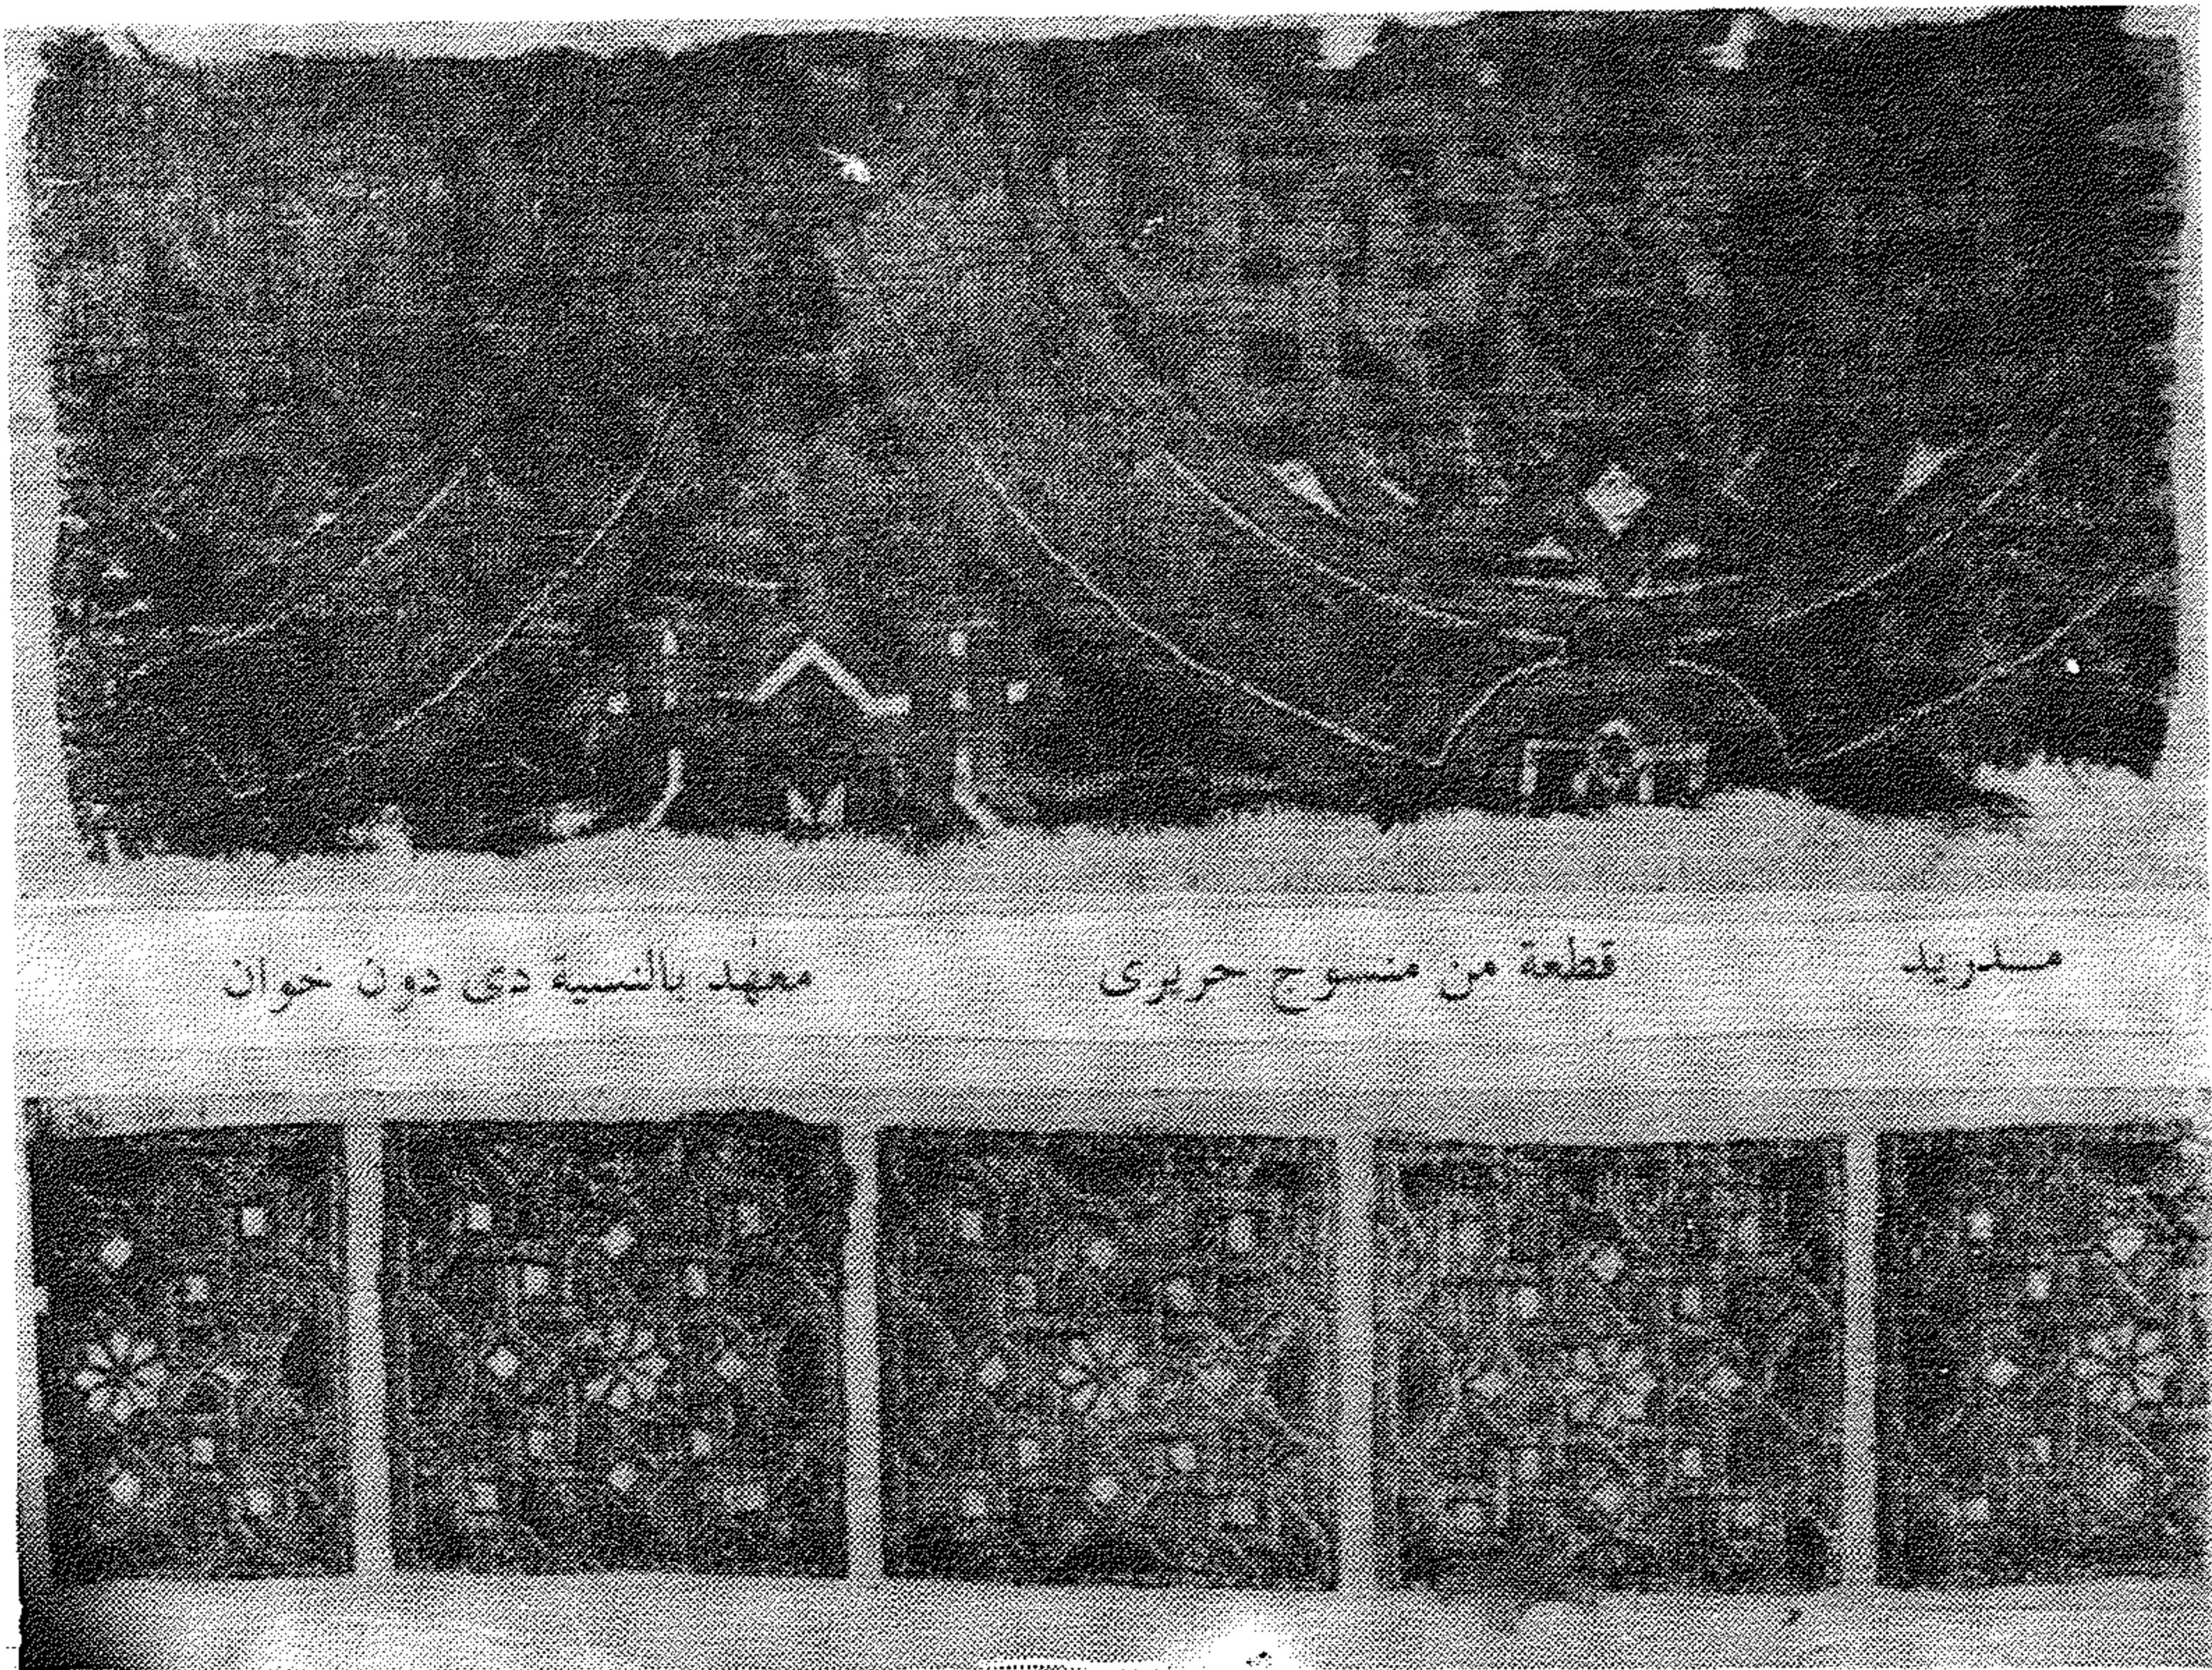 مدريد قطعة من منسوج حريرى معهد بالنسية دى دون خوان